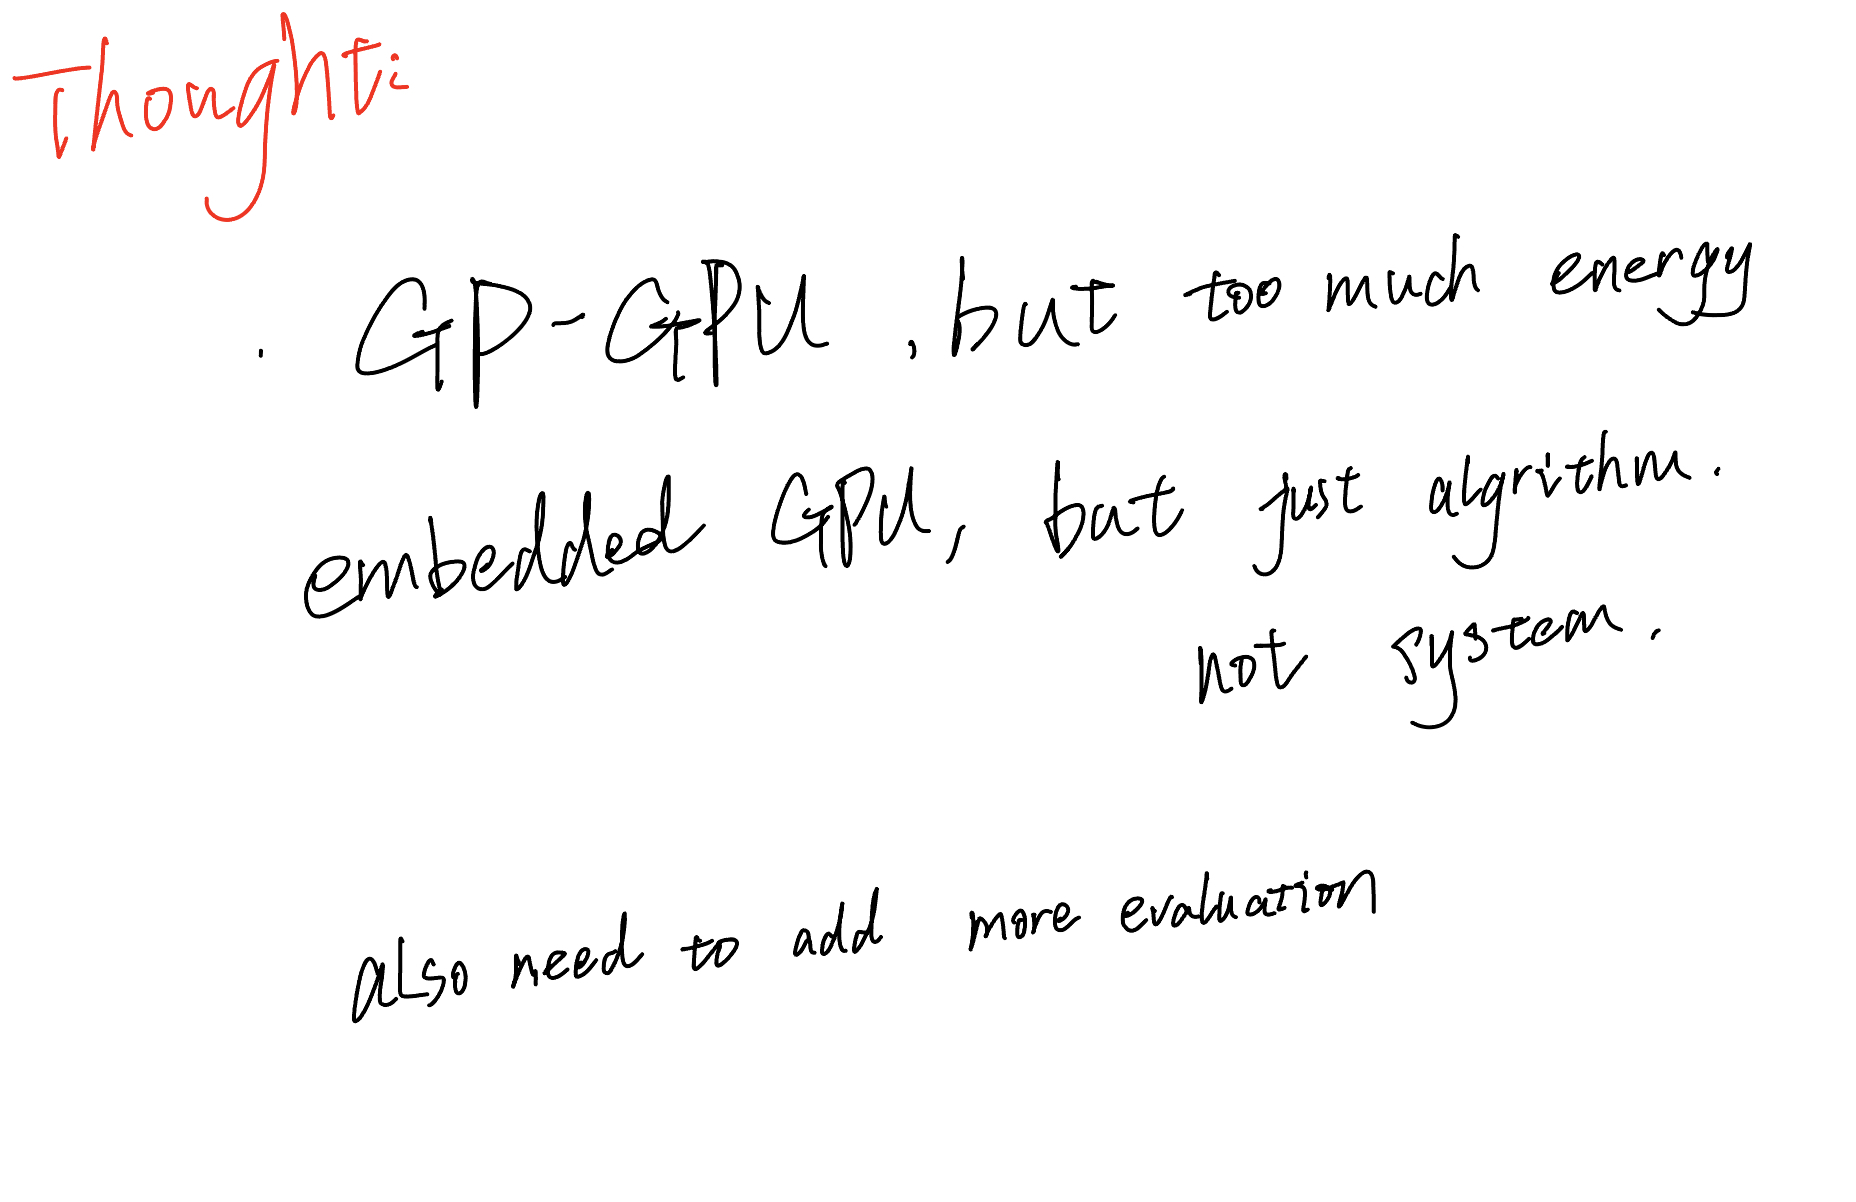 Thought:
· GP-GPU, but too much energy
embedded GPU, but just algrithm.
not system.
also need to add more evaluation